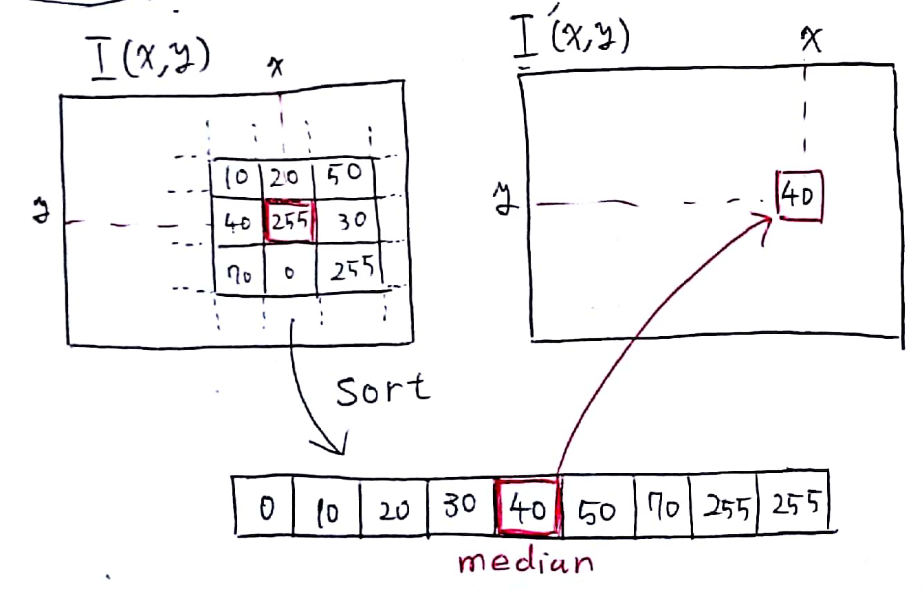 I(x,y)
x
y
10 20 50
40 255 30
70 0 255
Sort
I'(x,y)
x
y
40
0 10 20 30 40 50 70 255 255
median